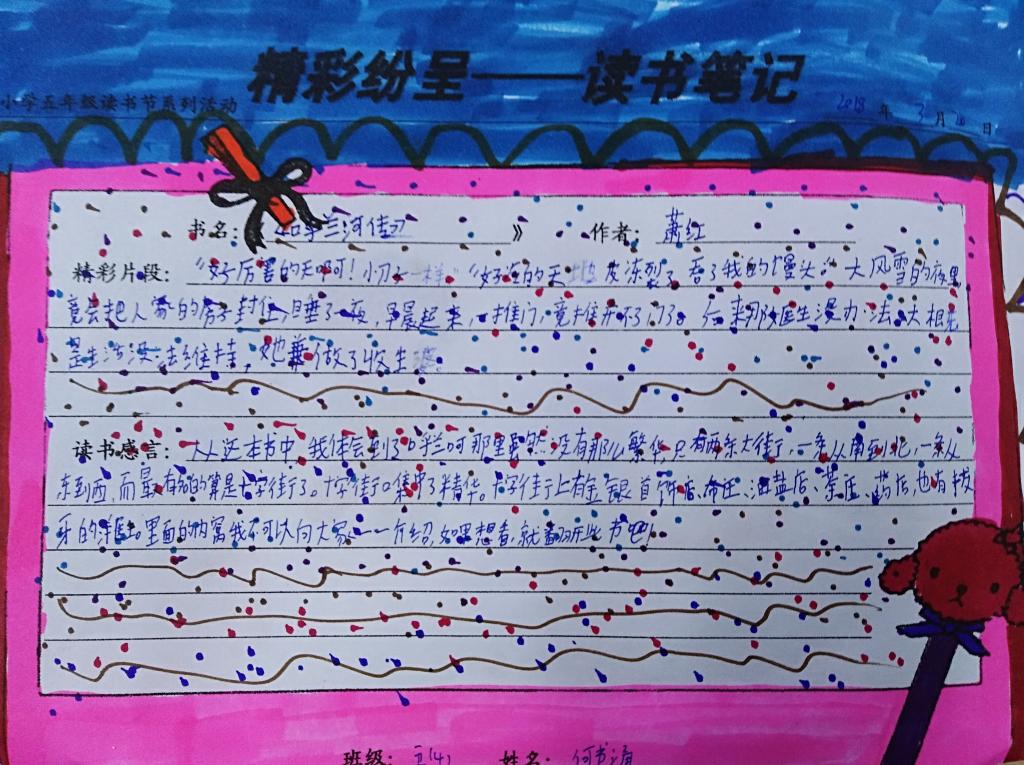 精彩纷呈——读书笔记
小学五年级读书节系列活动
2018年3月20日
书名:《呼兰河传》 作者: 萧红
精彩片段: “好厉害的天啊!小刀子一样”“好冷的天 地皮冻裂了,吞了我的馒头。”大风雪的夜里
竟会把人家的房子封住,睡了一夜,早晨起来,一推门,竟推不开门了。后来那医生没办法大概
是生活没法维持,她兼做了收生婆
读书感言: 从这本书中,我体会到了呼兰河那里虽然没有那么繁华,只有两条大街,一条从南到北,一条从
东到西,而最有名的算是十字街了。十字街口集中了精华。十字街上有金银首饰店、布庄、油盐店、茶庄、药店,也有拔
牙的洋医。里面的内容我不可以向大家一一介绍,如果想看,就翻开此书吧!
班级: 五(4) 姓名: